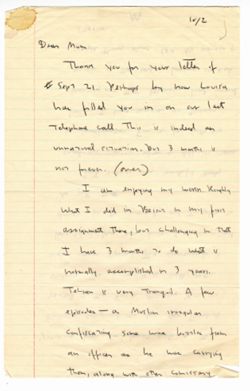 10/2
Dear Mum.
Thank you for your letter of
Sept 21. Perhaps by now Louisa
has filled you in on our last
telephone call. This is indeed an
unnatural situation. But 3 months is
not forever. (over)
I am enjoying my work. Roughly
what I did in Beirut in my first
assignment there, but challenging in that
I have 3 months to do what is
normally accomplished in 3 years.
Tehran is very tranquil. A few
episodes — a Moslem irregular
confiscating some wine bottles from
an officer as he was carrying
them, along with other commissary